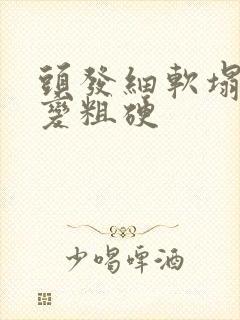 頭發細軟塌
變粗硬
少喝啤酒